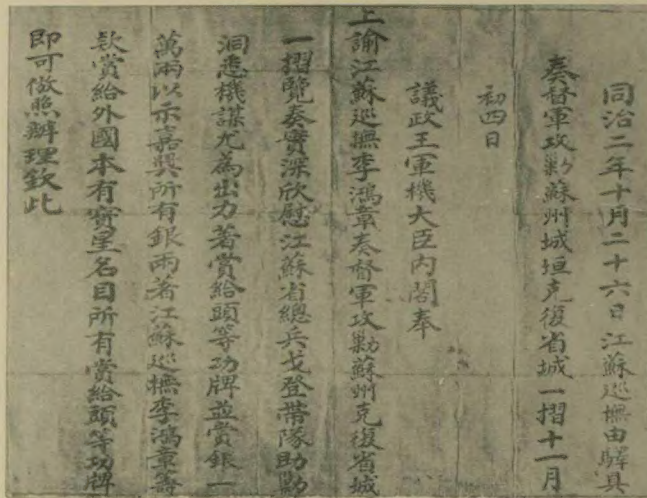 同治二年十月二十六日江蘇巡撫由驛具
奏督軍攻勦蘇州城垣克復省城一摺十一月
初四日
議政王軍機大臣内閣奉
上諭江蘇巡撫李鴻章奏督軍攻勦蘇州克復省城
一摺覽奏實深欣慰江蘇省總兵戈登帶隊助勦
洞悉機謀尤為出力著賞給頭等功牌並賞銀一
萬兩以示嘉奬所有銀兩著江蘇巡撫李鴻章籌
欵賞給外國本有寶星名目所有賞給頭等功牌
即可倣照辦理欽此